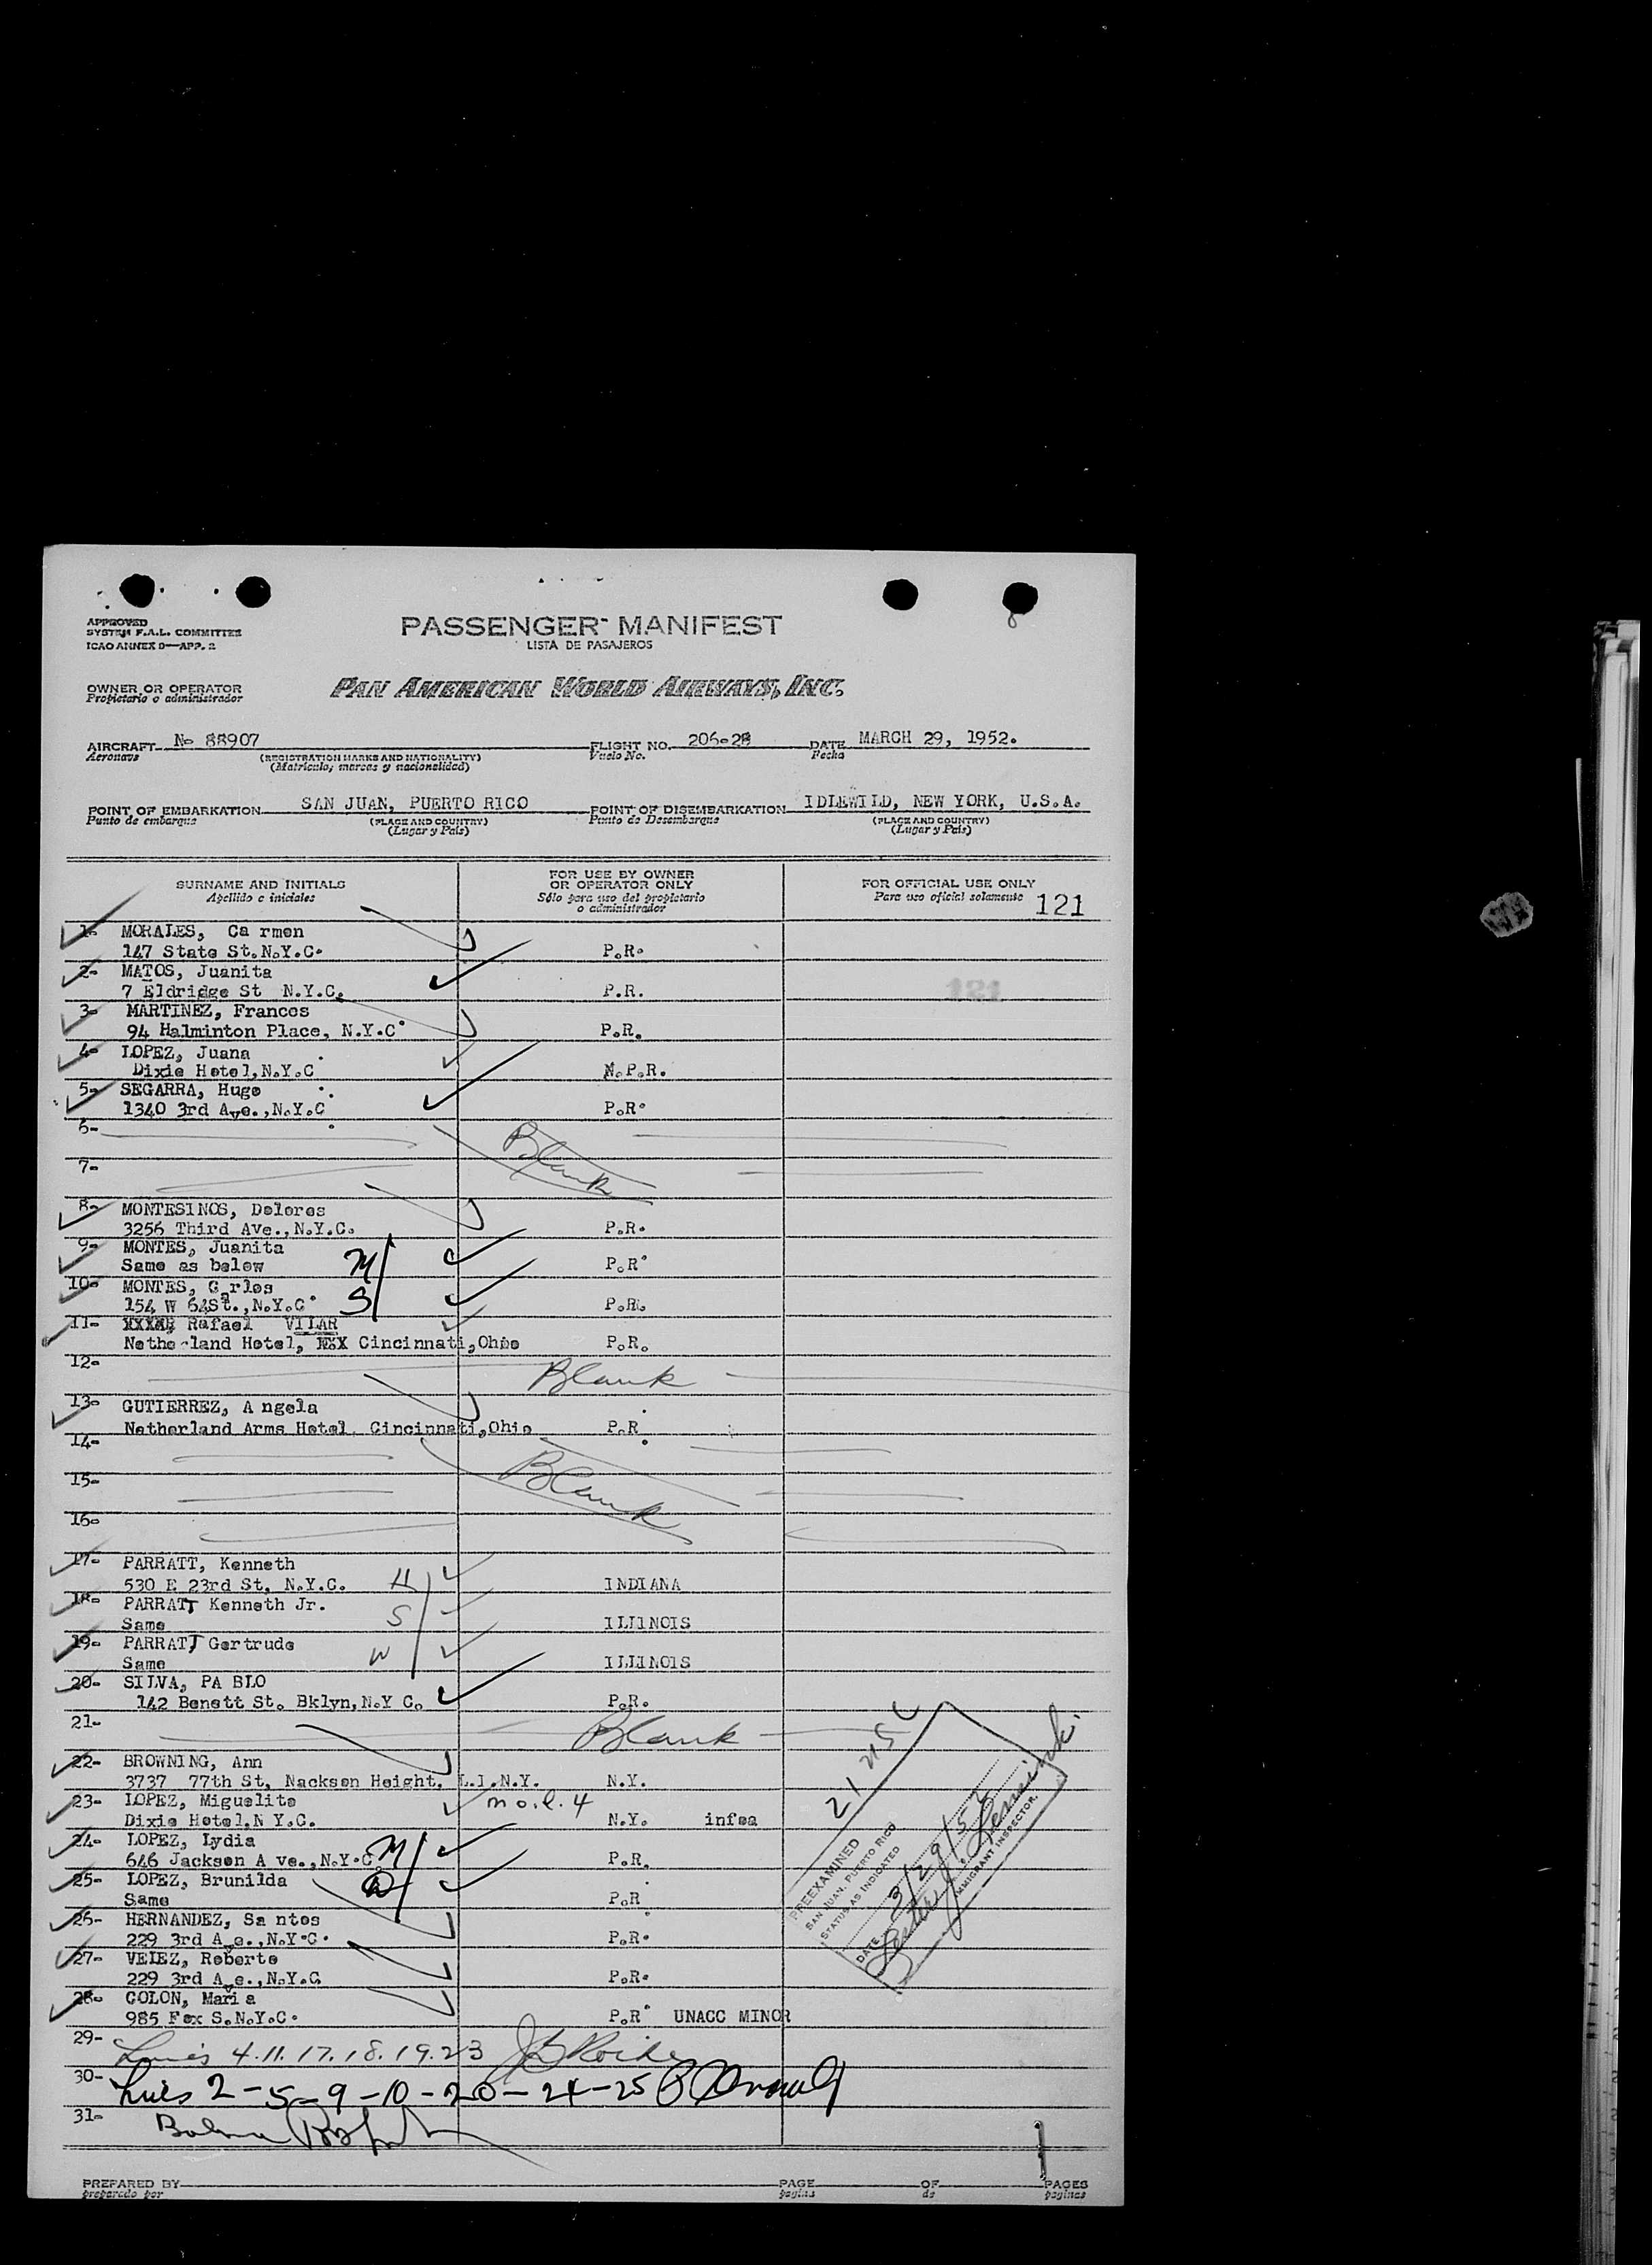 APPROVED
SYSTEM F.A.L. COMMITTEE
ICAO ANNEX 9—APP. 2
PASSENGER MANIFEST
LISTA DE PASAJEROS
8
OWNER OR OPERATOR
Propietario o administrador
PAN AMERICAN WORLD AIRWAYS, INC.
AIRCRAFT No 88907 FLIGHT NO. 206-28 DATE MARCH 29, 1952.
Aeronave (REGISTRATION MARKS AND NATIONALITY) Vuelo No. Fecha
(Matrícula, marcas y nacionalidad)
POINT OF EMBARKATION SAN JUAN, PUERTO RICO POINT OF DISEMBARKATION IDLEWILD, NEW YORK, U.S.A.
Punto de embarque (PLACE AND COUNTRY) Punto de Desembarque (PLACE AND COUNTRY)
(Lugar y País) (Lugar y País)
SURNAME AND INITIALS FOR USE BY OWNER OR OPERATOR ONLY FOR OFFICIAL USE ONLY
Apellido e iniciales Sólo para uso del propietario o administrador Para uso oficial solamente 121
1- MORALES, Ca rmen
147 State St.N.Y.C. P.R.
2- MATOS, Juanita
7 Eldridge St N.Y.C. P.R. 121
3- MARTINEZ, Frances
94 Halminton Place, N.Y.C. P.R.
4- LOPEZ, Juana
Dixie Hotel,N.Y.C N.P.R.
5- SEGARRA, Hugo
1340 3rd Ave.,N.Y.C P.R.
6- Blank
7-
8- MONTESINOS, Dolores
3256 Third Ave.,N.Y.C. P.R.
9- MONTES, Juanita
Same as below M P.R.
10- MONTES, Carlos
154 W 64St.,N.Y.C. S P.R.
11- XXXXX Rafael VILAR
Nethe-land Hotel, NXX Cincinnati,Ohio P.R.
12- Blank
13- GUTIERREZ, A ngela
Netherland Arms Hotel Cincinnati,Ohio P.R.
14-
Blank
15-
16-
17- PARRATT, Kenneth
530 E 23rd St, N.Y.C. H INDIANA
18- PARRATT Kenneth Jr.
Same S ILLINOIS
19- PARRATT Gertrude
Same W ILLINOIS
20- SILVA, PA BLO
142 Benett St. Bklyn,N.Y C. P.R.
21- Blank
22- BROWNING, Ann
3737 77th St, Nackson Height, L.I.N.Y. N.Y.
23- LOPEZ, Miguelito
Dixie Hotel,N Y.C. N.Y. infea
24- LOPEZ, Lydia
646 Jackson A ve.,N.Y.C. M P.R.
25- LOPEZ, Brunilda
Same D P.R
26- HERNANDEZ, Sa ntos
229 3rd Ave.,N.Y.C. P.R.
27- VELEZ, Roberto
229 3rd Ave.,N.Y.C P.R.
28- COLON, Mari a
985 Fox S.N.Y.C. P.R. UNACC MINOR
PREEXAMINED
SAN JUAN, PUERTO RICO
STATUS AS INDICATED
DATE 3/29/52
IMMIGRANT INSPECTOR.
29-
Lines 4.11.17.18.19.23
30-
Lines 2-5-9-10-20-24-25
31-
PREPARED BY PAGE OF PAGES
preparado por página de páginas